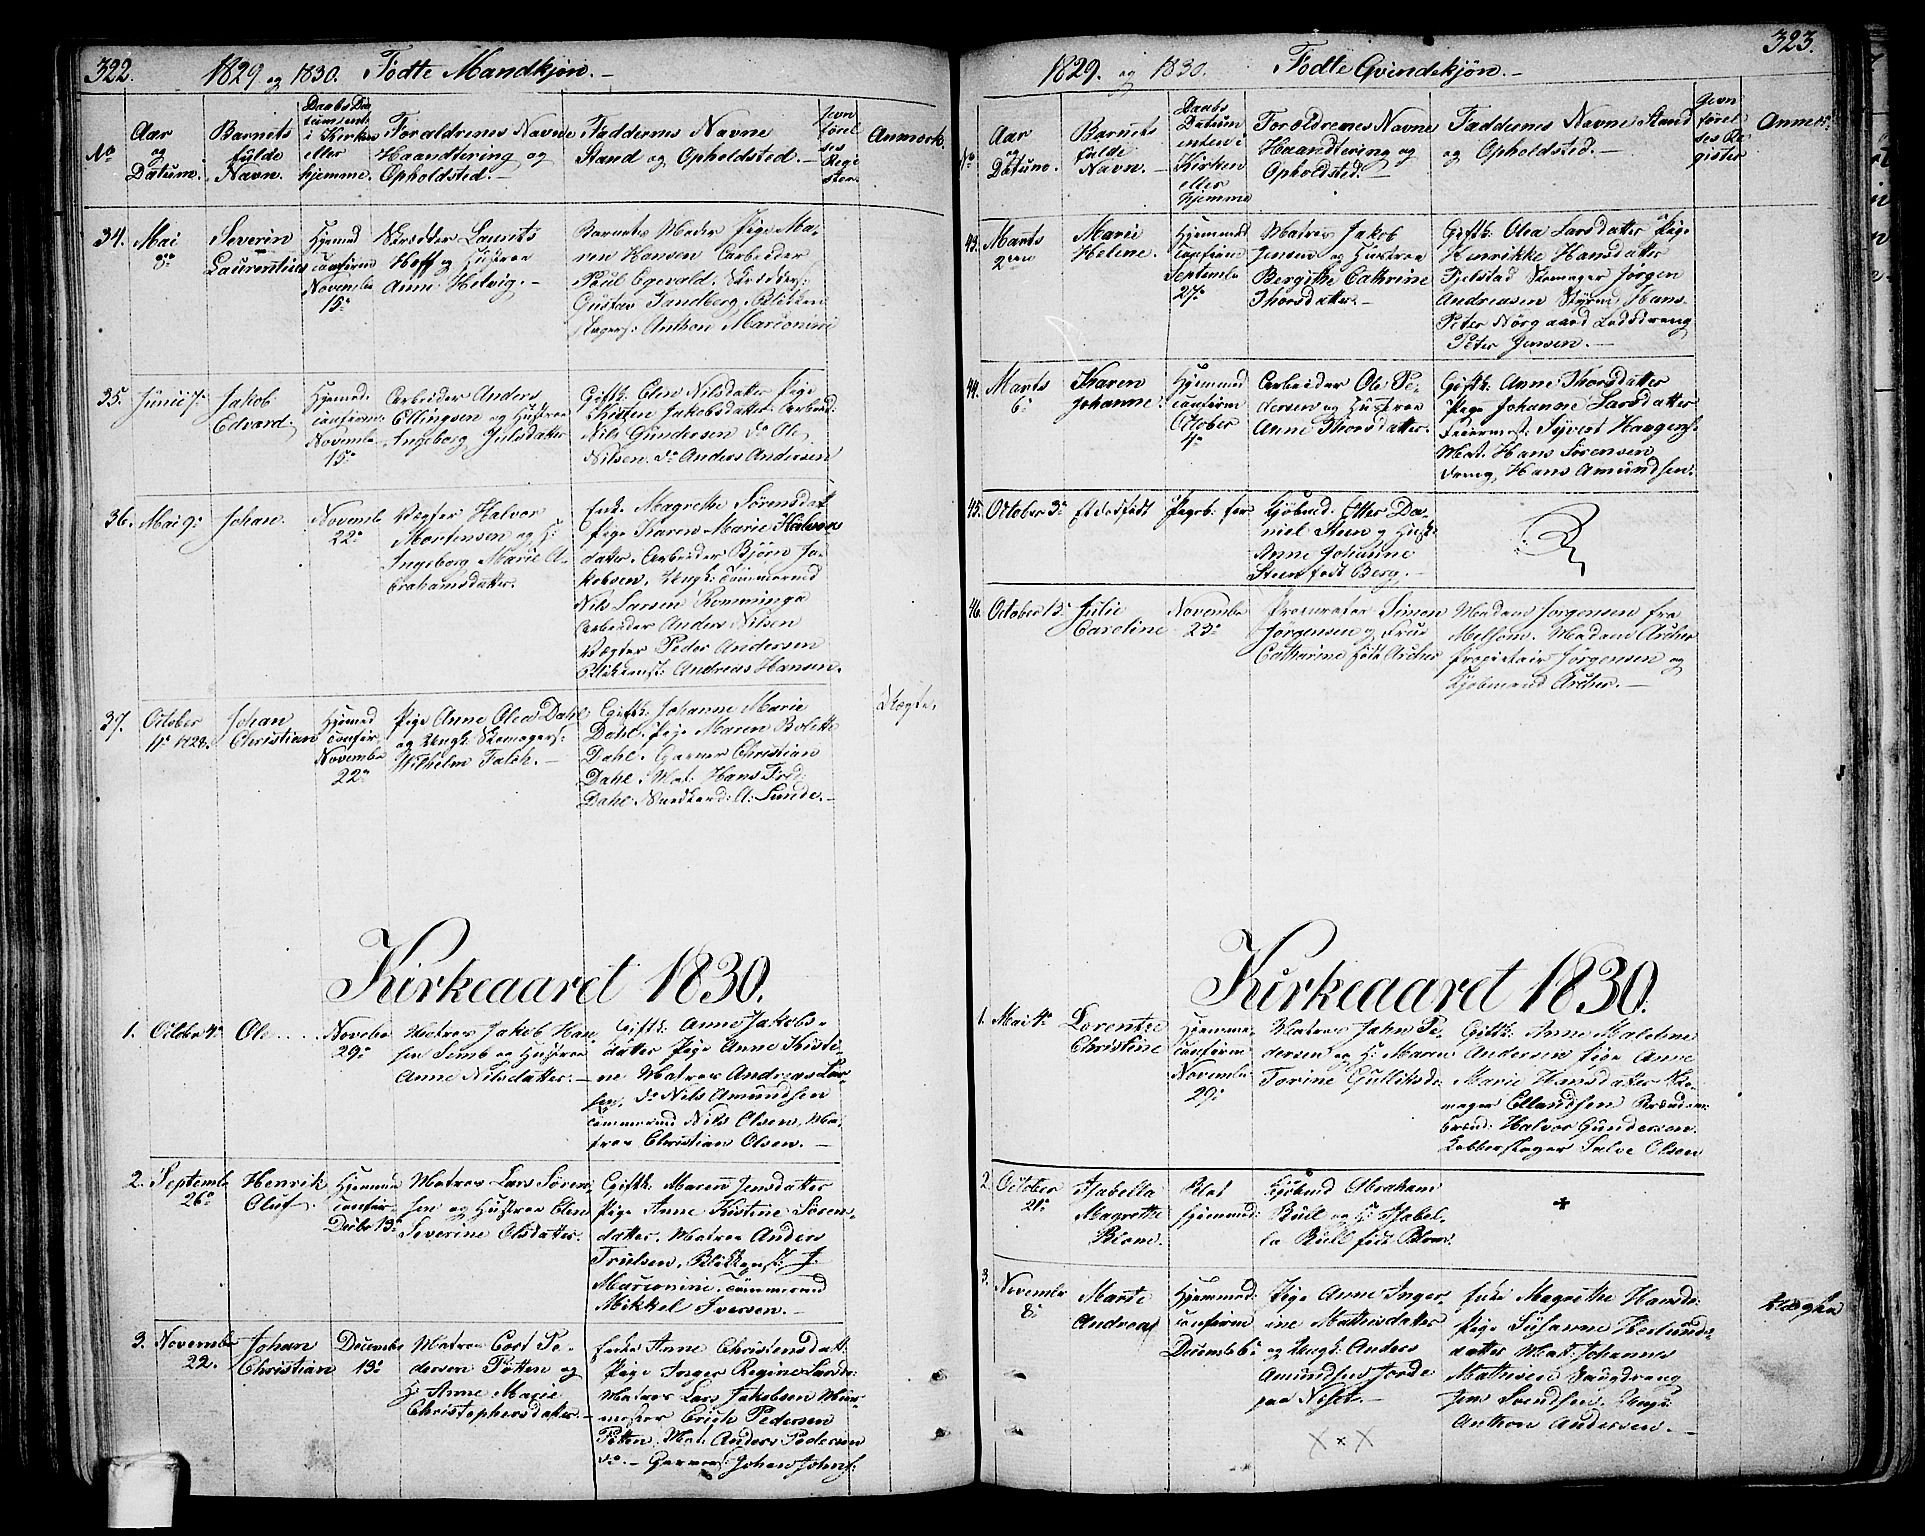 322.
1829 og 1830. Födte Mandkjön.
No
Aar og Datum.
Barnets fulde Navn.
Daabs Datum enten i Kirken eller hjemme.
Forældrenes Navne Haandtering og Opholdsted.
Faddernes Navne Stand og Opholdsted.
Jevnförelses Register.
Anmærk.
34. Mai 8de
Severin Laurentius
Hjemmed confirm Novembe 15de
Skrædder Laurits Hoff og Hustrue Anne Helvig.
Barnets Moder Pige Maren Hansen Arbeider
Poul Egevald, Skrædders:
Gustav Sandberg, Blikkenslagers: Anthon Marconini
35. Junii 7de
Jakob Edvard.
Hjemmed confirm: Novembe 15de
Arbeider Anders Ellingsen og Hustrue Ingeborg Julsdatter
Giftk: Elen Nilsdatter Pige
Kirsten Jakobsdatter. Arbeid:
Nils Gundersen do Ole
Nilsen. do Anders Andersen
36. Mai 9de
Johan.
Novembe 22de
Vægter Halvor Mortensen og H: Ingeborg Marie Abrahamsdatter.
Enke Magrethe Sörensdat
Pige Karen Marie Halvors
datter. Arbeider Björn Jakobsen, Ungk: Tömmermd
Nils Larsen Romminga
Arbeider Anders Nilsen
Vægter Peder Andersen
Blikkenst: Andreas Hansen.
37. October 11te 1829.
Johan Christian
Hjemmed confir. Novembe 22de
Pige Anne Olea Dahl og Ungk. Skomagers: Wilhelm Falch.
Giftk: Johanne Marie
Dahl. Pige Maren Bolette
Dahl. Garver Christian
Dahl. Mat: Hans Fred:
Dahl. Snedkersv: A: Lunde.
Uægte.
Kirkeaaret 1830.
1. October 4de
Ole
Novebe 29de
Matros Jakob Hansen Semb og Hustrue Anne Nilsdatter.
Giftk: Anne Jakobsdatter Pige Anne Kirstine Matros Andreas Larsen, do Nils Amundsen
Tömmermd Nils Olsen, Matros Christian Olsen.
2. Septembe 26de
Henrik Oluf.
Hjemme confir. Decbe 13de
Matros Lars Sörensen og Hustrue Elen Severine Olsdatter.
Giftk: Maren Jensdatter
Pige Anne Kirstine Sörensdatter, Matros Anders
Trulsen, Blikkenst: J.
Marconini. Tömmermd
Mikkel Iversen.
3. Novembe 22.
Johan Christian
Decembe 13de
Matros Cort Pedersen Totten og H: Anne Marie Christophersdatter.
Enke Anne Christensdatt:
Pige Inger Regine Lands:
Matros Lars Jakobsen Murmester Erich Pedersen
Totten. Mat: Anders Pedersen
do. Garvers: Johan Johns:
323.
1829. og 1830. Födte Qvindekjön.
No
Aar og Datum.
Barnets fulde Navn.
Daabs Datum enten i Kirken eller hjemme
Forældrenes Navne Haandtering og Opholdsted.
Faddernes Navne Stand og Opholdsted.
Jevnförelses Register
Anmerk.
43. Marts 2den
Marie Heline.
Hjemmed confirm Septembe 27de
Matros Jakob Jensen og Hustrue Bergithe Cathrine Thorsdatter.
Giftk: Olea Larsdatter Pige
Henrikke Hansdatter
Fjelstad Skomager Jörgen
Andreasen Styrmd Hans
Peter Nörgaard Lodsdreng
Peter Jensen.
44. Marts 6de
Karen Johanne.
Hjemmed confirm October 4de
Arbeider Ole Pedersen og Hustrue Anne Thorsdatter.
Giftk: Anne Thorsdatter
Pige Johanne Larsdatter
Sivert Haagens:
Mat. Hans Sörensen
Dreng Hans Amundsen.
45. October 3de
et dödfödt Pigeb: for
Kjöbmd Otto Daniel Steen og Hust: Anne Johanne Steen födt Berg.
46. October 13de
Julie Caroline
Novembe 23de
Procurator Simon Jörgensen og Frue Catharine födt Archer
Madam Jorgensen fra
Melsom. Madam Archer
Proprietair Jörgensen og
Kjöbmand Archer.
Kirkeaaret 1830.
1. Mai 4de
Lorentze Christine
Hjemme confirm Novembe 29de
Matros Jahn Pedersen og H: Maren Torine Gulliksdr
Giftk: Anne Malehne
Andersen Pige Anne
Marie Hansdatter Skomager Ellandsen
Halvor Gundersen.
Kobberslager Salve Olsen
2. October 21de
Isabella Magrethe Blom.
Blot hjemmed:
Kjöbmd Abraham Bull og H: Isabella Bull födt Blom.
3. Novembe 8de
Marte Andrea
Hjemmed: confirm Decembe 6te
Pige Anne Ingerine Mathisdatter og Ungk: Anders Amundsen Jorde paa Nesset.
Enke Magrethe Hansdr
Pige Susanne Herlunds
datter Mat: Johannes
Mathisen
Jens Svendsen, Ungk:
Anthon Andersen.
Uægte
× × ×